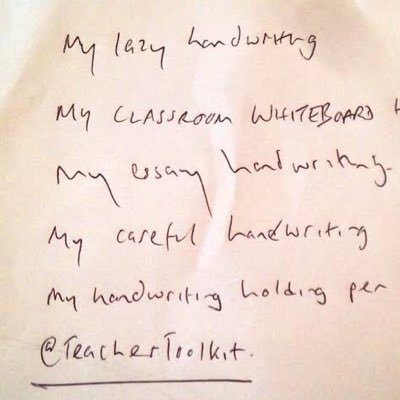 My lazy handwriting
My CLASSROOM WHITEBOARD
My essay handwriting.
My careful handwriting
My handwriting holding pen
@TeacherToolkit.